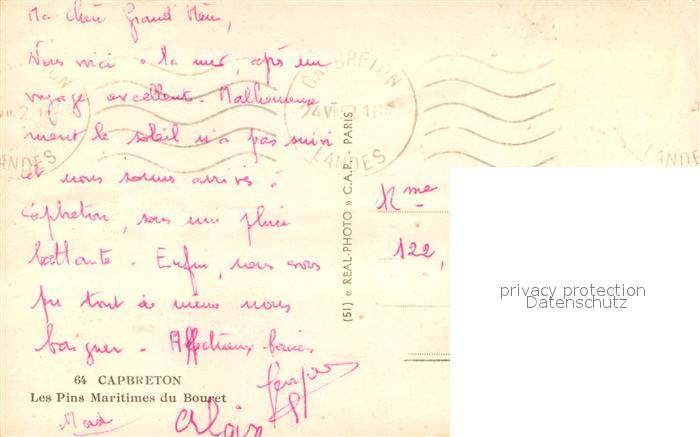 Ma chère Grand'Mère,
Nous voici à la mer, après un
voyage excellent. Malheureuse
ment le soleil n'a pas suivi
et nous sommes arrivés à
Capbreton, sous une pluie
battante. Enfin, nous avons
pu tout de même nous
baigner. Affectueux baisers
Alain
Mad
64 CAPBRETON
Les Pins Maritimes du Bouret
CAPBRETON
LANDES
LANDES
LANDES
(51) « REAL-PHOTO » C.A.P. - PARIS
Mme
122,
privacy protection
Datenschutz